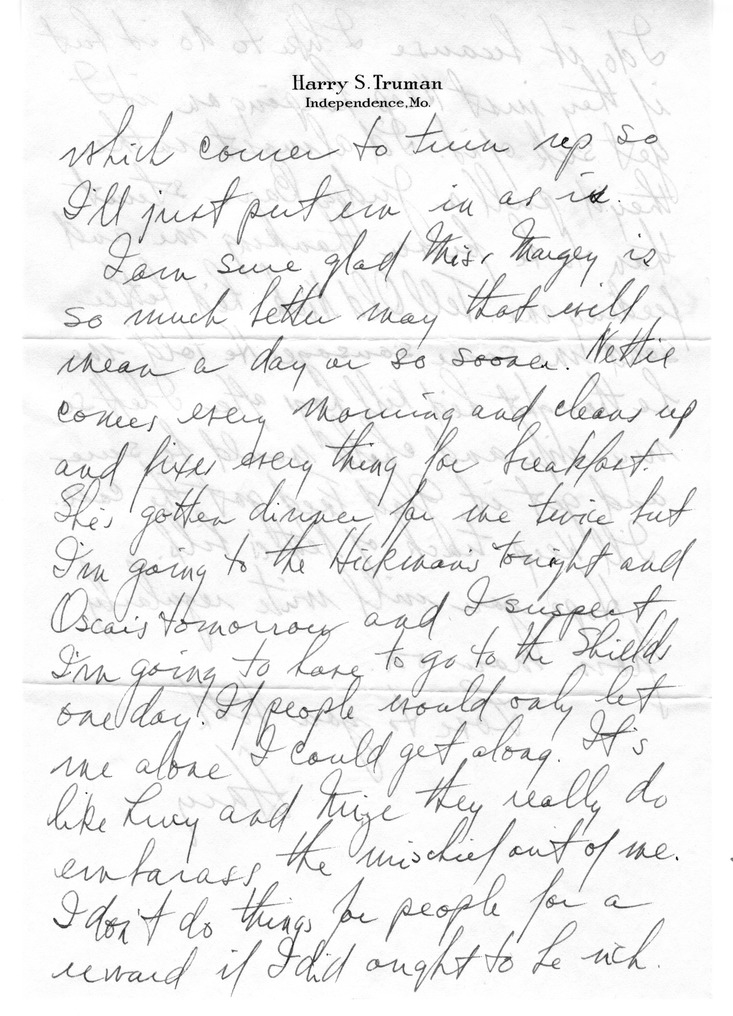 Harry S. Truman
Independence, Mo.
which corner to turn up so
I'll just put em in as is.
I am sure glad Miss Margey is
so much better may that will
mean a day or so sooner. Nettie
comes every morning and cleans up
and fixes every thing for breakfast.
She's gotten dinner for me twice but
I'm going to the Hickman's tonight and
Oscar's tomorrow and I suspect
I'm going to have to go to the Shields
one day. If people would only let
me alone I could get along. It's
like Lucy and Mize they really do
embarass the mischief out of me.
I don't do things for people for a
reward if I did ought to be rich.